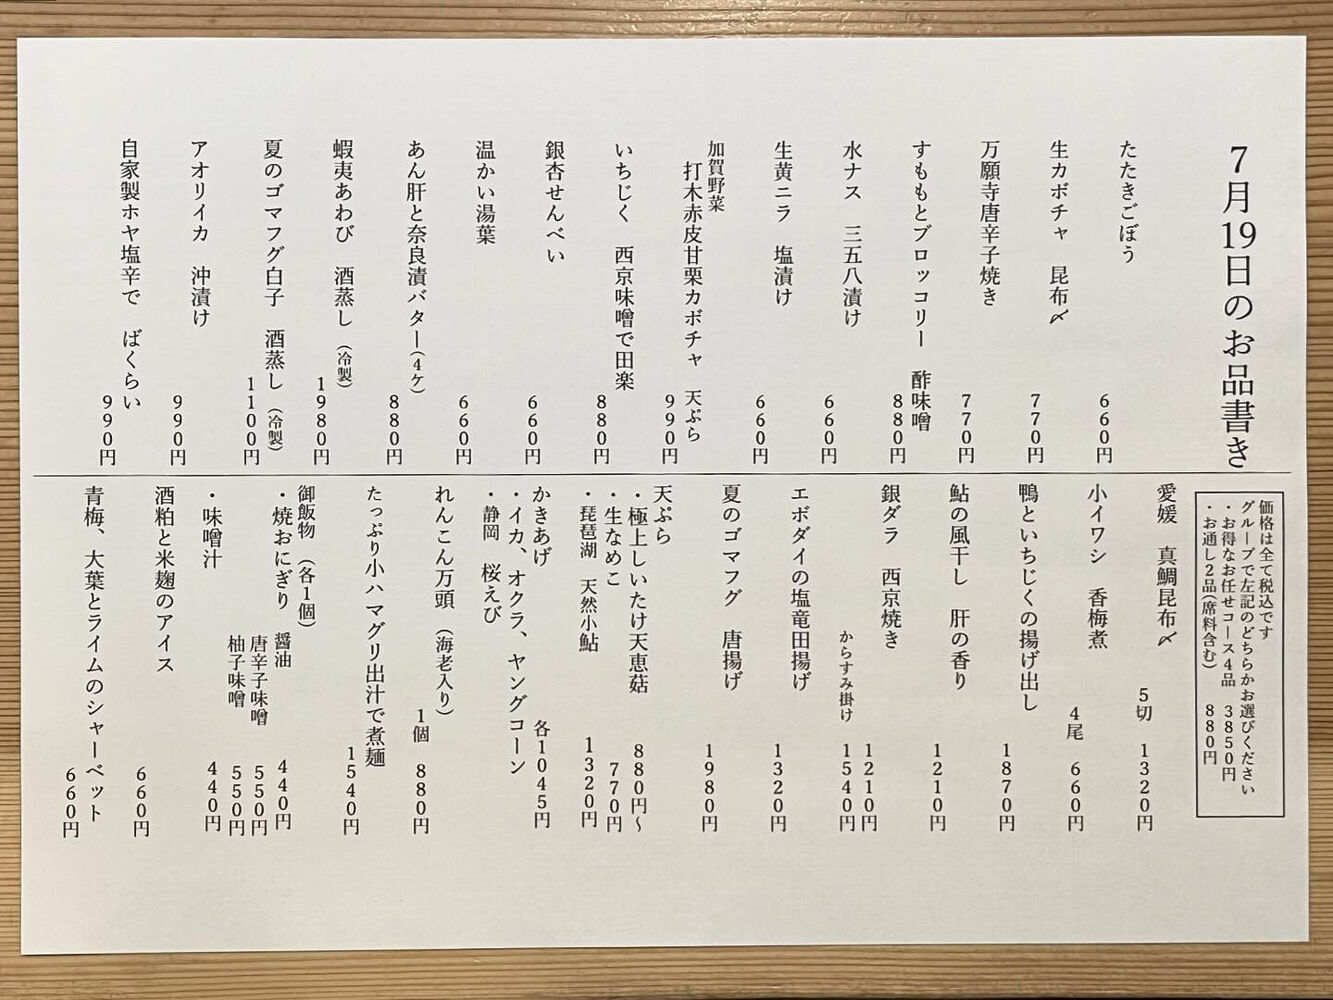 7月19日のお品書き
たたきごぼう
660円
生カボチャ 昆布〆
770円
万願寺唐辛子焼き
770円
すももとブロッコリー 酢味噌
880円
水ナス 三五八漬け
660円
生黄ニラ 塩漬け
660円
加賀野菜
打木赤皮甘栗カボチャ 天ぷら
990円
いちじく 西京味噌で田楽
880円
銀杏せんべい
660円
温かい湯葉
660円
あん肝と奈良漬バター(4ケ)
880円
蝦夷あわび 酒蒸し(冷製)
1980円
夏のゴマフグ白子 酒蒸し(冷製)
1100円
アオリイカ 沖漬け
990円
自家製ホヤ塩辛で ばくらい
990円
価格は全て税込です
グループで左記のどちらかお選びください
・お得なお任せコース4品 3850円
・お通し2品(席料含む) 880円
愛媛 真鯛昆布〆
5切 1320円
小イワシ 香梅煮
4尾 660円
鴨といちじくの揚げ出し
1870円
鮎の風干し 肝の香り
1210円
銀ダラ 西京焼き
1210円
からすみ掛け 1540円
エボダイの塩竜田揚げ
1320円
夏のゴマフグ 唐揚げ
1980円
天ぷら
・極上しいたけ天恵菇 880円〜
・生なめこ 770円
・琵琶湖 天然小鮎 1320円
かきあげ 各1045円
・イカ、オクラ、ヤングコーン
・静岡 桜えび
れんこん万頭 (海老入り)
1個 880円
たっぷり小ハマグリ出汁で煮麺
1540円
御飯物 (各1個)
・焼おにぎり 醤油 440円
唐辛子味噌 550円
柚子味噌 550円
・味噌汁 440円
酒粕と米麹のアイス
660円
青梅、大葉とライムのシャーベット
660円